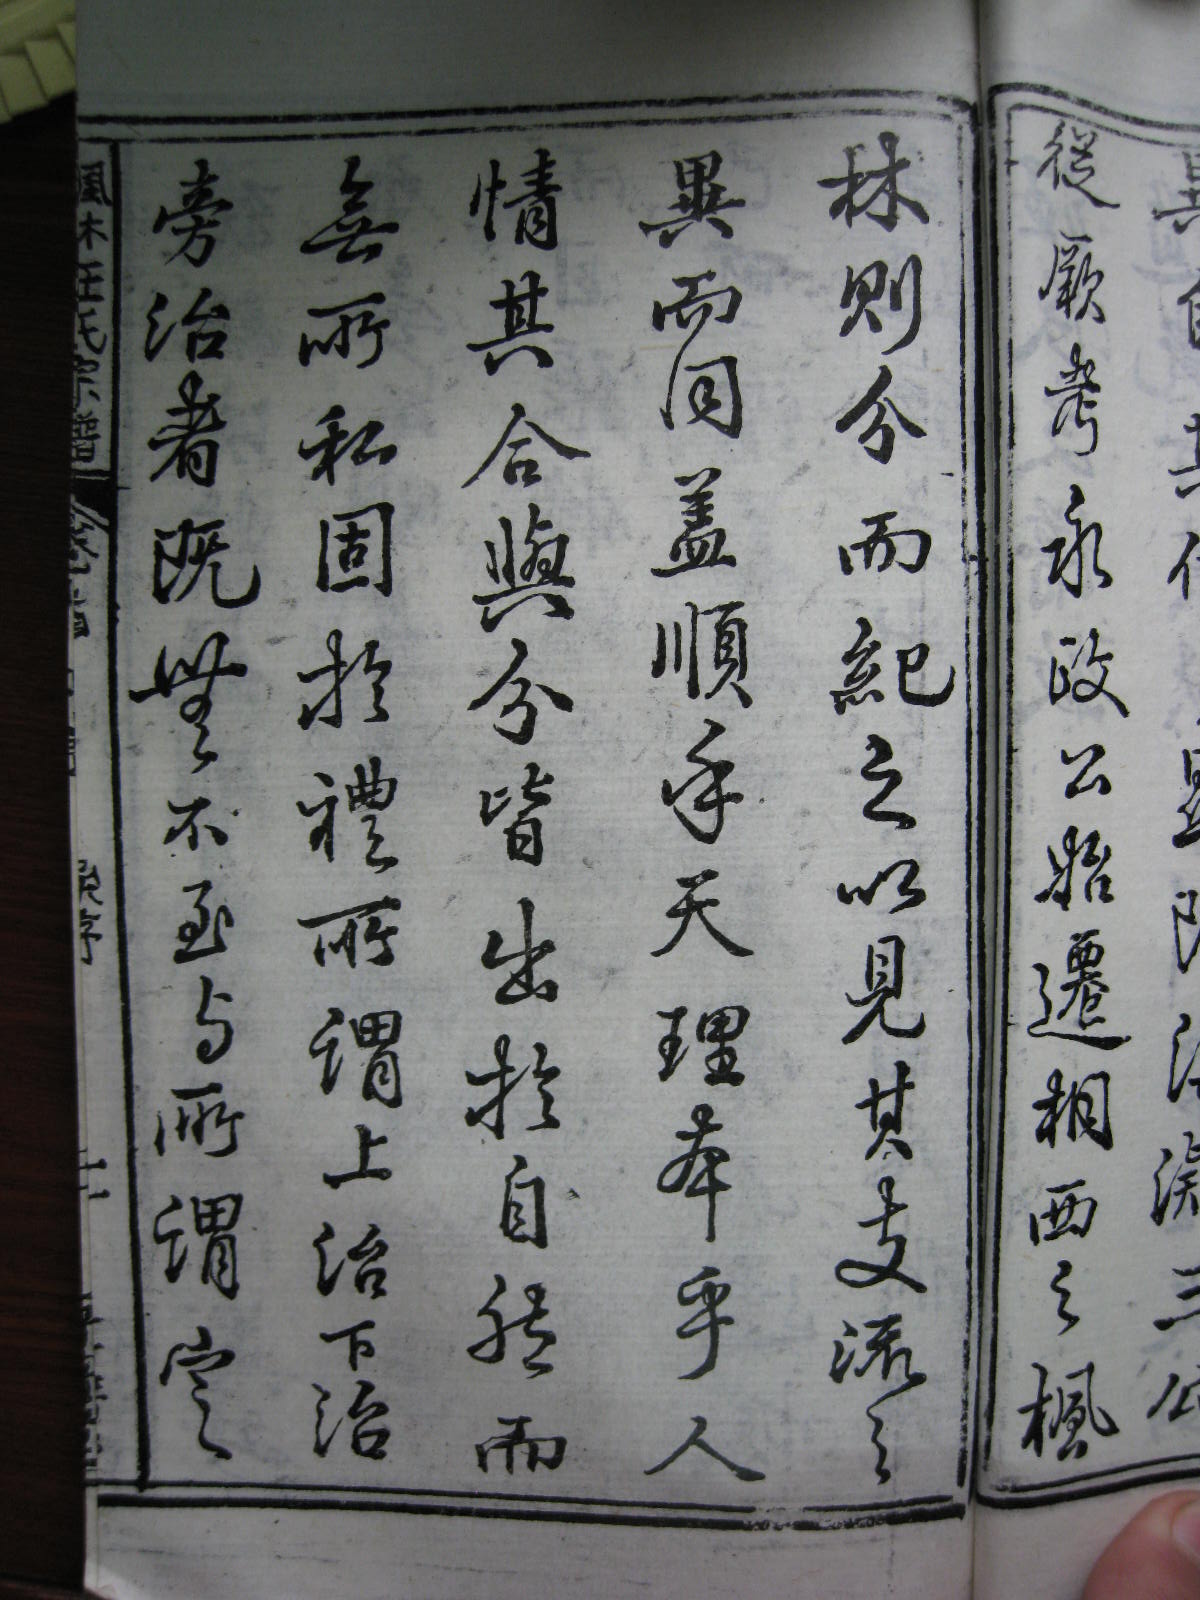 從厥考永政公始遷桐西之楓
林則分而紀之以見其支流之
異而同蓋順乎天理本乎人
情其合與分皆出於自然而
無所私固於禮所謂上治下治
旁治者既無不至与所謂定
楓林汪氏宗譜 卷首